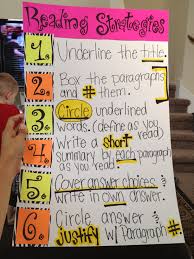 Reading Strategies
1. Underline the title.
2. Box the paragraphs
and # them.
3. Circle underlined
words. (define as you
read)
4. Write a short
summary by each paragraph
as you read.
5. Cover answer choices
write in own answer.
6. Circle answer &
justify w/ Paragraph #